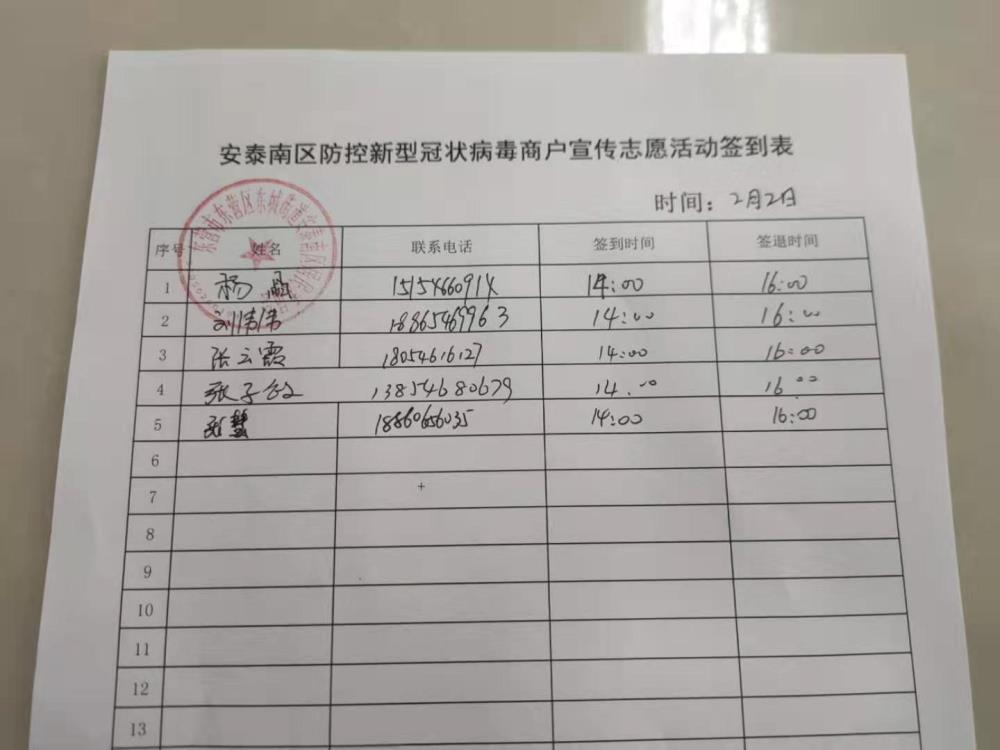 安泰南区防控新型冠状病毒商户宣传志愿活动签到表
时间：2月2日
序号 姓名 联系电话 签到时间 签退时间
1 杨晶 15154660914 14:00 16:00
2 刘伟伟 18865469963 14:00 16:00
3 张云霞 18054616127 14:00 16:00
4 张子 13854680679 14:00 16:00
5 慧 18860656035 14:00 16:00
6
7
8
9
10
11
12
13
东营市东营区东城街道安泰南区居民